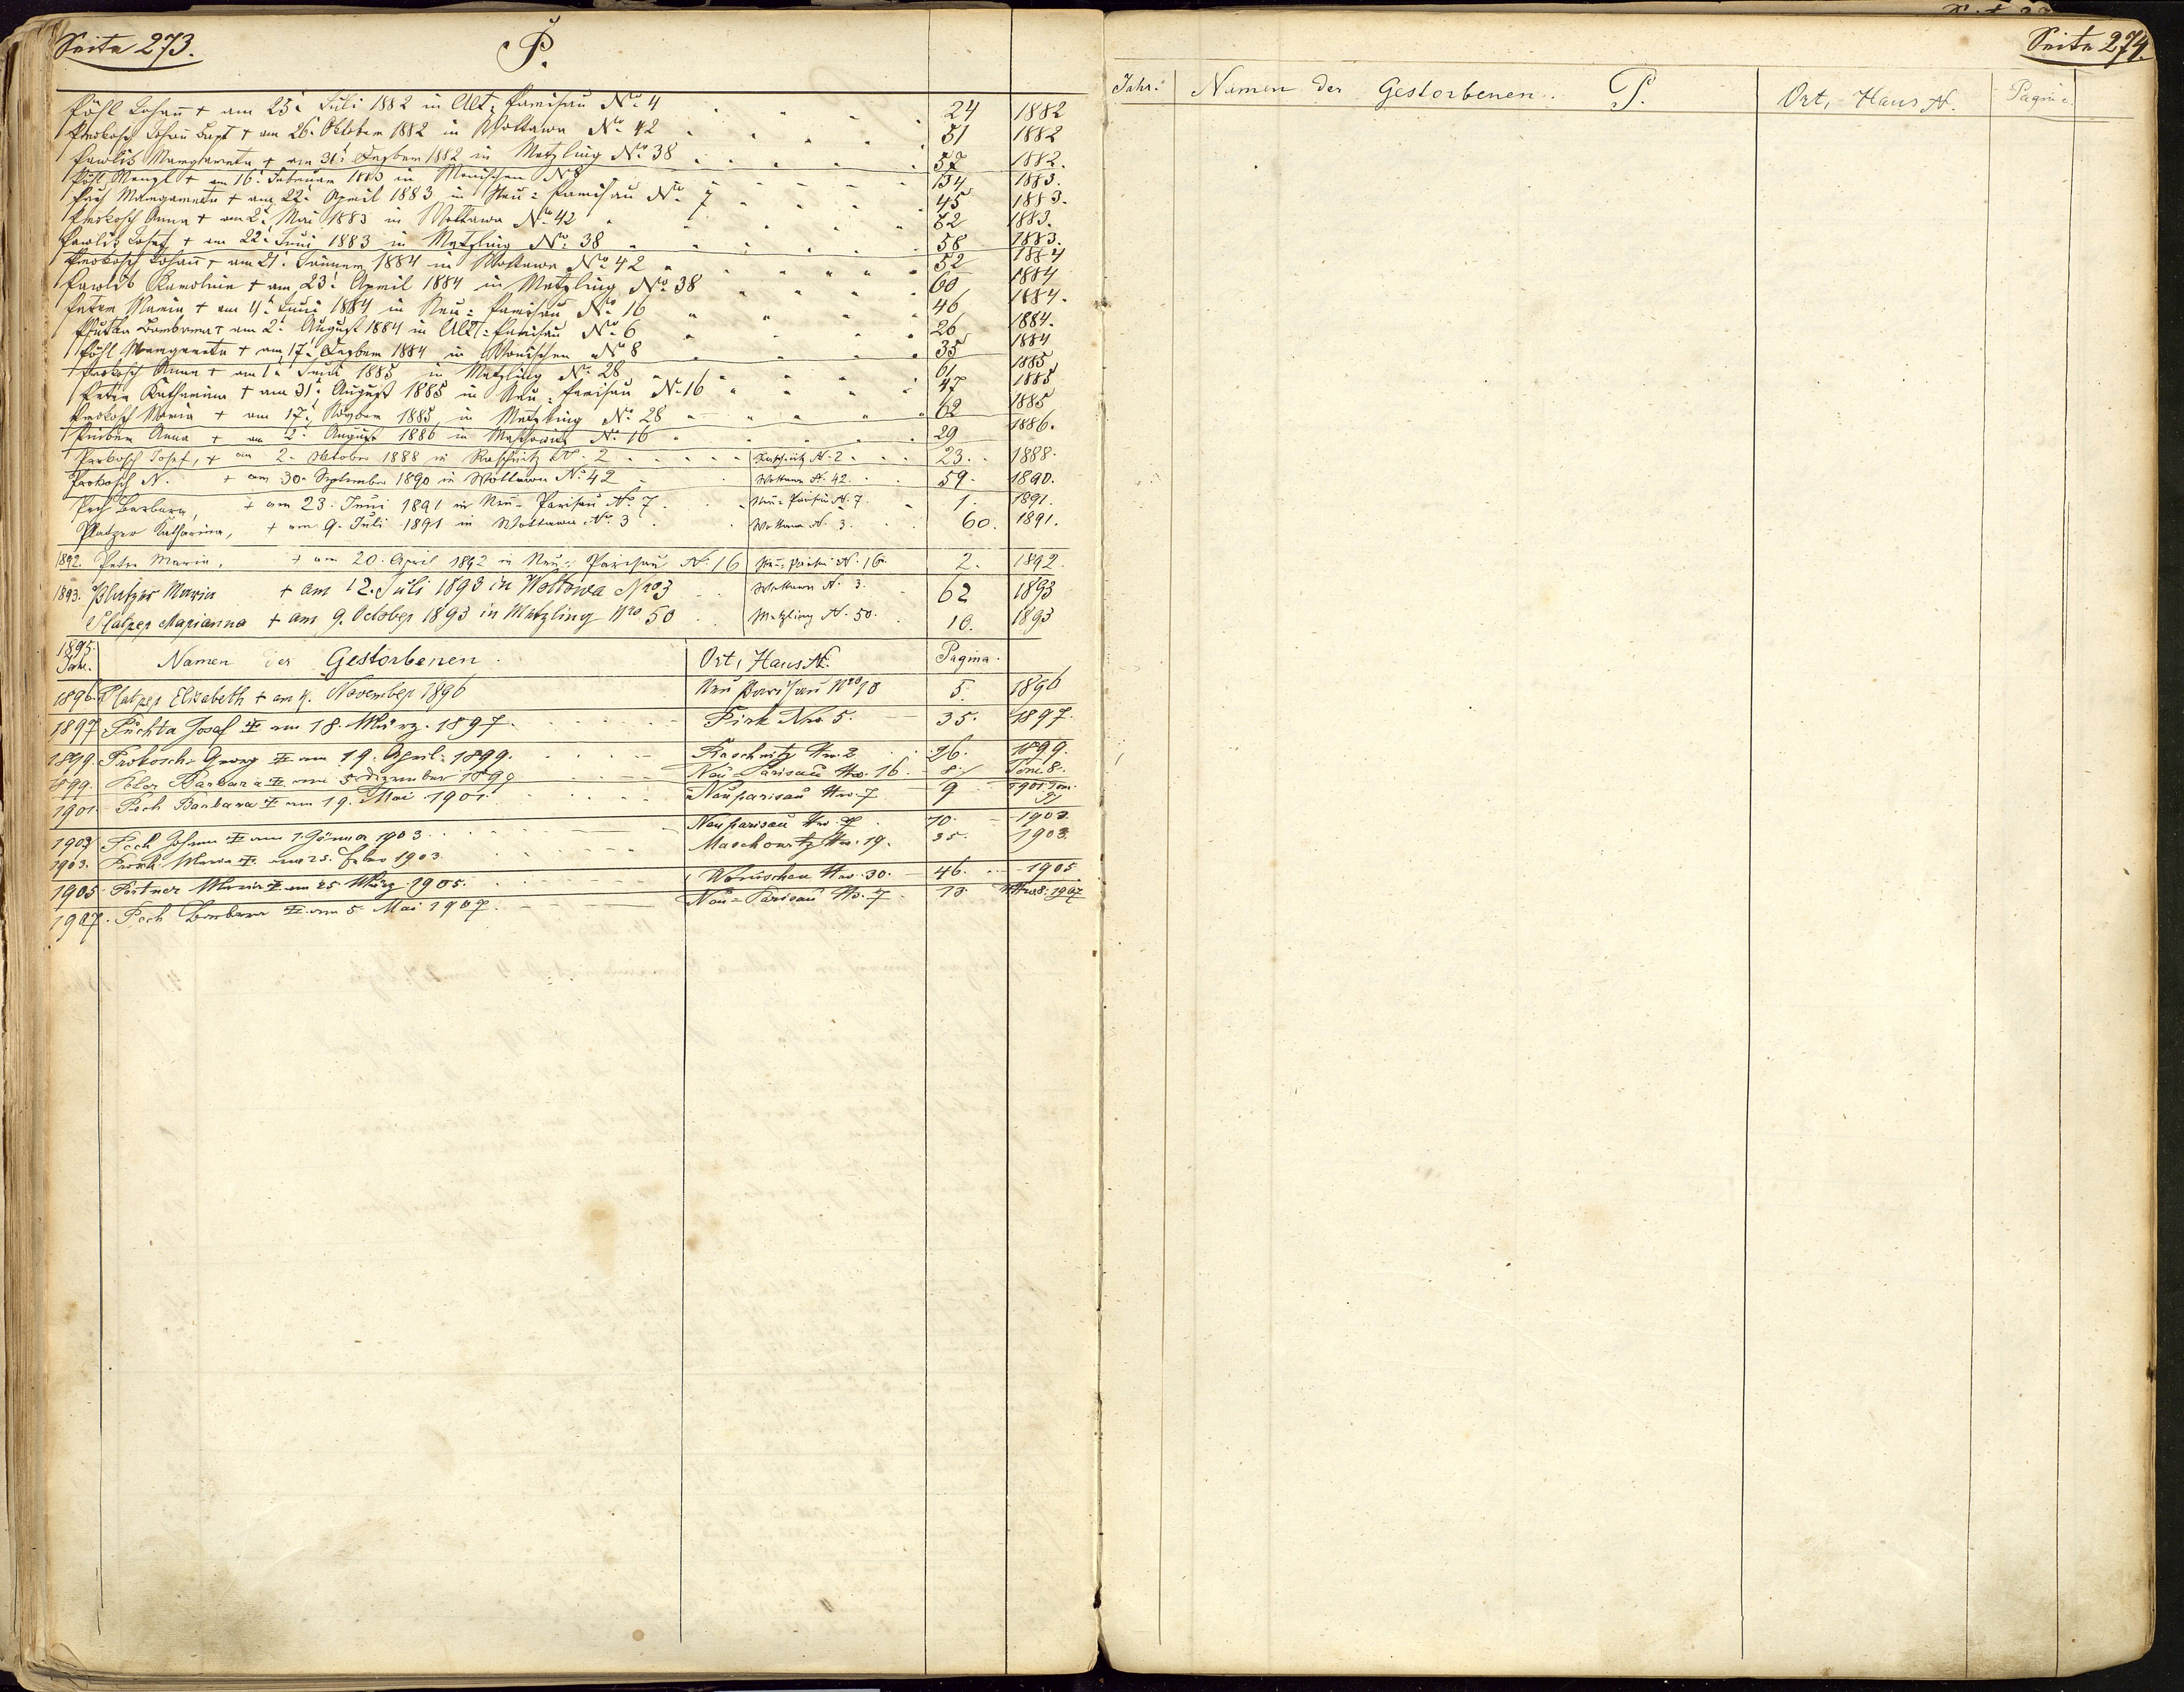 Seite 273.
P.
Pöhl Johann † am 25. Juli 1882 in Alt-Parisau No. 4 24 1882
Prokosch Johann Bapt † am 26. Oktober 1882 in Wottawa No. 42 51 1882
Pawlik Margareta † am 31. Dezber 1882 in Metzling No. 38 57 1882.
Pöhl Wenzl † am 16. Februar 1883 in Wonischen No 8 134 1883.
Pech Margareta † am 22. April 1883 in Neu-Parisau No. 7 45 1883.
Prokosch Anna † am 2. Mai 1883 in Wottawa No. 42 72 1883.
Pawlik Josef † am 22. Juni 1883 in Metzling No. 38 58 1883.
Prokosch Johann † am 21. Jänner 1884 in Wottawa No. 42 52 1884
Pawlik Karolina † am 23. April 1884 in Metzling No. 38 60 1884
Peter Maria † am 4. Juni 1884 in Neu-Parisau No. 16 46 1884.
Barbara † am 2. August 1884 in Alt-Parisau No. 6 26 1884.
Pöhl Margareta † am 17. Dezber 1884 in Wonischen No 8 35 1884
Prokosch Anna † am 1. Juni 1885 in Metzling No. 28 61 1885
Peter Katharina † am 31. August 1885 in Neu-Parisau No. 16 47 1885
Prokosch Maria † am 17. Novber 1885 in Metzling No. 28 62 1885
Anna † am 2. August 1886 in Maschowitz No. 16 29 1886.
Prokosch Josef, † am 2. Oktober 1888 in Raschnitz N. 2 Raschnitz N. 2 23. 1888.
Prokosch N. † am 30. September 1890 in Wottawa No. 42 Wottawa N. 42. 59. 1890.
Pech Barbara, † am 23. Juni 1891 in Neu-Parisau No. 7. Neu-Parisau N. 7. 1. 1891.
Platzer Katharina, † am 9. Juli 1891 in Wottawa No. 3 Wottawa N. 3. 60. 1891.
1892. Peter Maria, † am 20. April 1892 in Neu-Parisau N. 16 Neu-Parisau N. 16. 2. 1892.
1893. Platzer Maria † am 12. Juli 1893 in Wottowa Nro 3 Wottawa N. 3. 62 1893
Platzer Marianna † am 9. October 1893 in Metzling Nro 50 Metzling N. 50. 10. 1893
1895.
Jahr. Namen der Gestorbenen. Ort, Haus N. Pagina.
1896. Platzer Elisabeth † am 4. November 1896 Neu Parisau Nro 5. 1896
1897 Puchta Josef † am 18. März. 1897. Pirk Nro. 5. 35. 1897.
1899. Prokosch Georg † am 19. April. 1899. Raschnitz Nro. 2 26. 1899.
1899. Peter Barbara † am 5 Dezember 1899 Neu-Parisau Nro. 16. 8. Tom 8.
1901. Pech Barbara † am 19. Mai 1901. Neuparisau Nro. 7 9 1901. Tom.
1903 Pech Johann † am 1. Jänner 1903. Neuparisau Nro. 7 10. 1903.
1903. Maria † am 25. Feber 1903. Maschowitz Nro. 19. 35. 1903.
1905 Portner Maria † am 25. März. 1905. Wonischen Nro. 30. 46. 1905
1907. Pech Barbara † am 5. Mai 1907. Neu-Parisau No. 7. 13 1907
Seite 274.
Jahr. Namen der Gestorbenen. P. Ort, Haus N. Pagina.